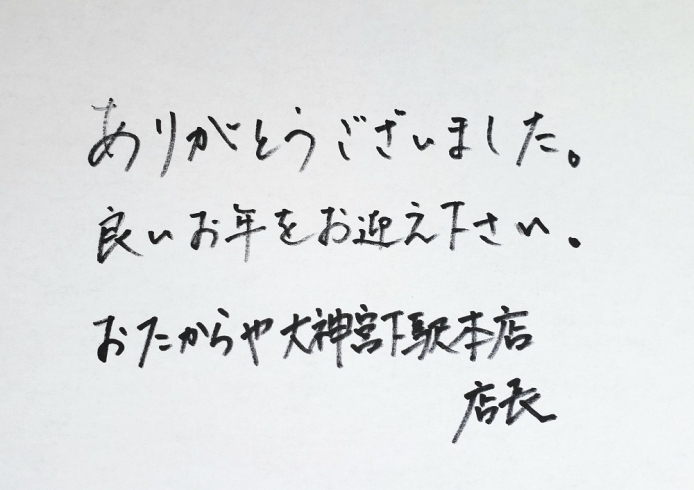 ありがとうございました。
良いお年をお迎え下さい。
おたからや大神宮下駅本店
店長